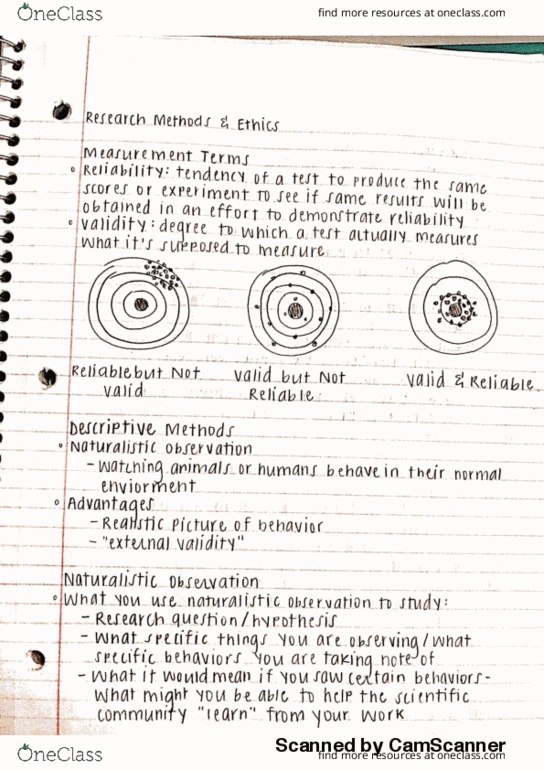 OneClass
find more resources at oneclass.com
Research Methods & Ethics
Measurement Terms
Reliability: tendency of a test to produce the same
scores or experiment to see if same results will be
obtained in an effort to demonstrate reliability
Validity: degree to which a test actually measures
what it's supposed to measure
Reliable but Not Valid
Valid but Not Reliable
Valid & Reliable
Descriptive Methods
Naturalistic observation
- Watching animals or humans behave in their normal
enviorment
Advantages
- Realistic picture of behavior
- "external validity"
Naturalistic observation
What you use naturalistic observation to study:
- Research question/hypothesis
- What specific things you are observing/what
specific behaviors you are taking note of
- What it would mean if you saw certain behaviors-
what might you be able to help the scientific
community "learn" from your work
Scanned by CamScanner
OneClass
find more resources at oneclass.com